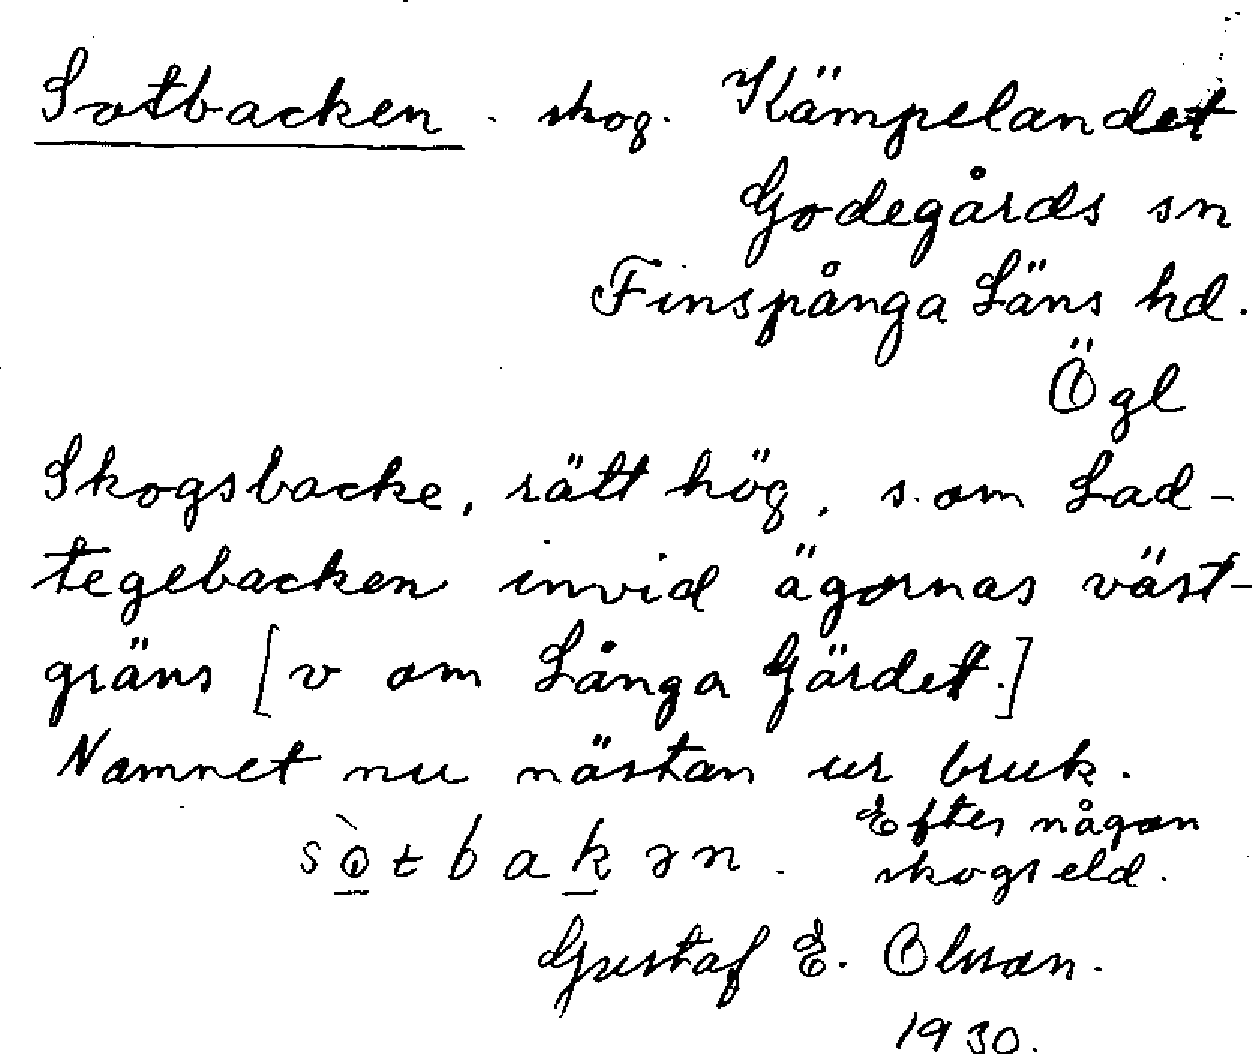 Sotbacken. skog. Kämpelandet
Godegårds sn
Finspånga Läns hd.
Ögl
Skogsbacke, rätt hög, s. om Lad-
tegebacken invid ägornas väst-
gräns [v om Långa Gärdet.]
Namnet nu nästan ur bruk.
Efter någon
sòtbakən. skogseld.
Gustaf E. Olsson.
1930.